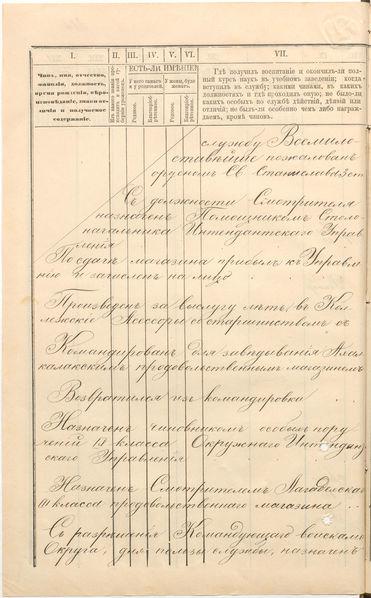 I.
II.
III.
IV.
V.
VI.
VII.
ЕСТЬ-ЛИ ИМѢНІЕ
Чинъ, имя, отчество,
фамилія, должность,
время рожденія, вѣро-
исповѣданіе, знаки от-
личія и получаемое
содержаніе.
У него самаго
и у родителей.
У жены, буде
женатъ.
Родовое.
Благопріобрѣтенное.
Родовое.
Благопріобрѣтенное.
Гдѣ получилъ воспитаніе и окончилъ-ли пол-
ный курсъ наукъ въ учебномъ заведеніи; когда
вступилъ въ службу; какими чинами, въ какихъ
должностяхъ и гдѣ проходилъ оную; не было-ли
какихъ особыхъ по службѣ дѣяній или
отличій; не былъ-ли особенно чѣмъ либо награж-
даемъ, кромѣ чиновъ.
службу Всемило-
стивѣйше пожалованъ
орденомъ Св. Станислава 3 ст
Съ должности Смотрителя
назначенъ Помощникомъ Столо-
начальника Интендантского Управ-
ленія
По сдачѣ магазина прибылъ къ Управле-
нію и зачисленъ на лицо
Произведенъ за выслугу лѣтъ въ Кол-
лежскіе Асессоры со старшинствомъ съ
Командированъ для завѣдыванія
калакскимъ продовольственнымъ магазиномъ
Возвратился изъ командировки
Назначенъ чиновникомъ особыхъ пору-
ченій класса Окружнаго Интендант-
скаго Управленія
Назначенъ Смотрителемъ
III класса продовольственнаго магазина
Съ разрѣшенія Командующаго войсками
Округа, для пользы службы, назначенъ